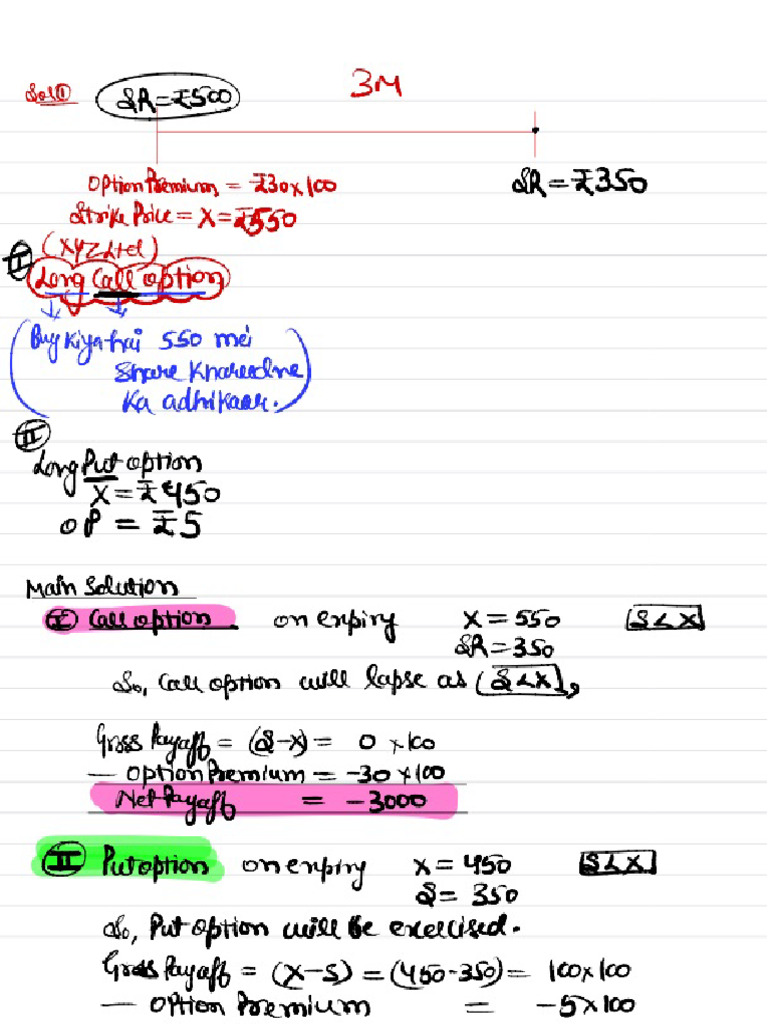 Sol① SR=₹500 3M
Option Premium = ₹30×100 SR=₹350
Strike Price = X=₹550
(XYZ Ltd)
I
Long Call option
(Buy kiya hai 550 mei
Share Khareedne
Ka adhikaar.)
II
Long Put option
X=₹450
OP = ₹5
Main Solution
I Call option on expiry X=550 S<X
SR=350
So, Call option will lapse as S<X,
Gross Payoff = (S-X) = 0 ×100
— Option Premium = -30×100
Net Payoff = -3000
II Put option on expiry X=450 S<X
S= 350
So, Put option will be exercised.
Gross Payoff = (X-S) = (450-350) = 100×100
— Option Premium = -5×100